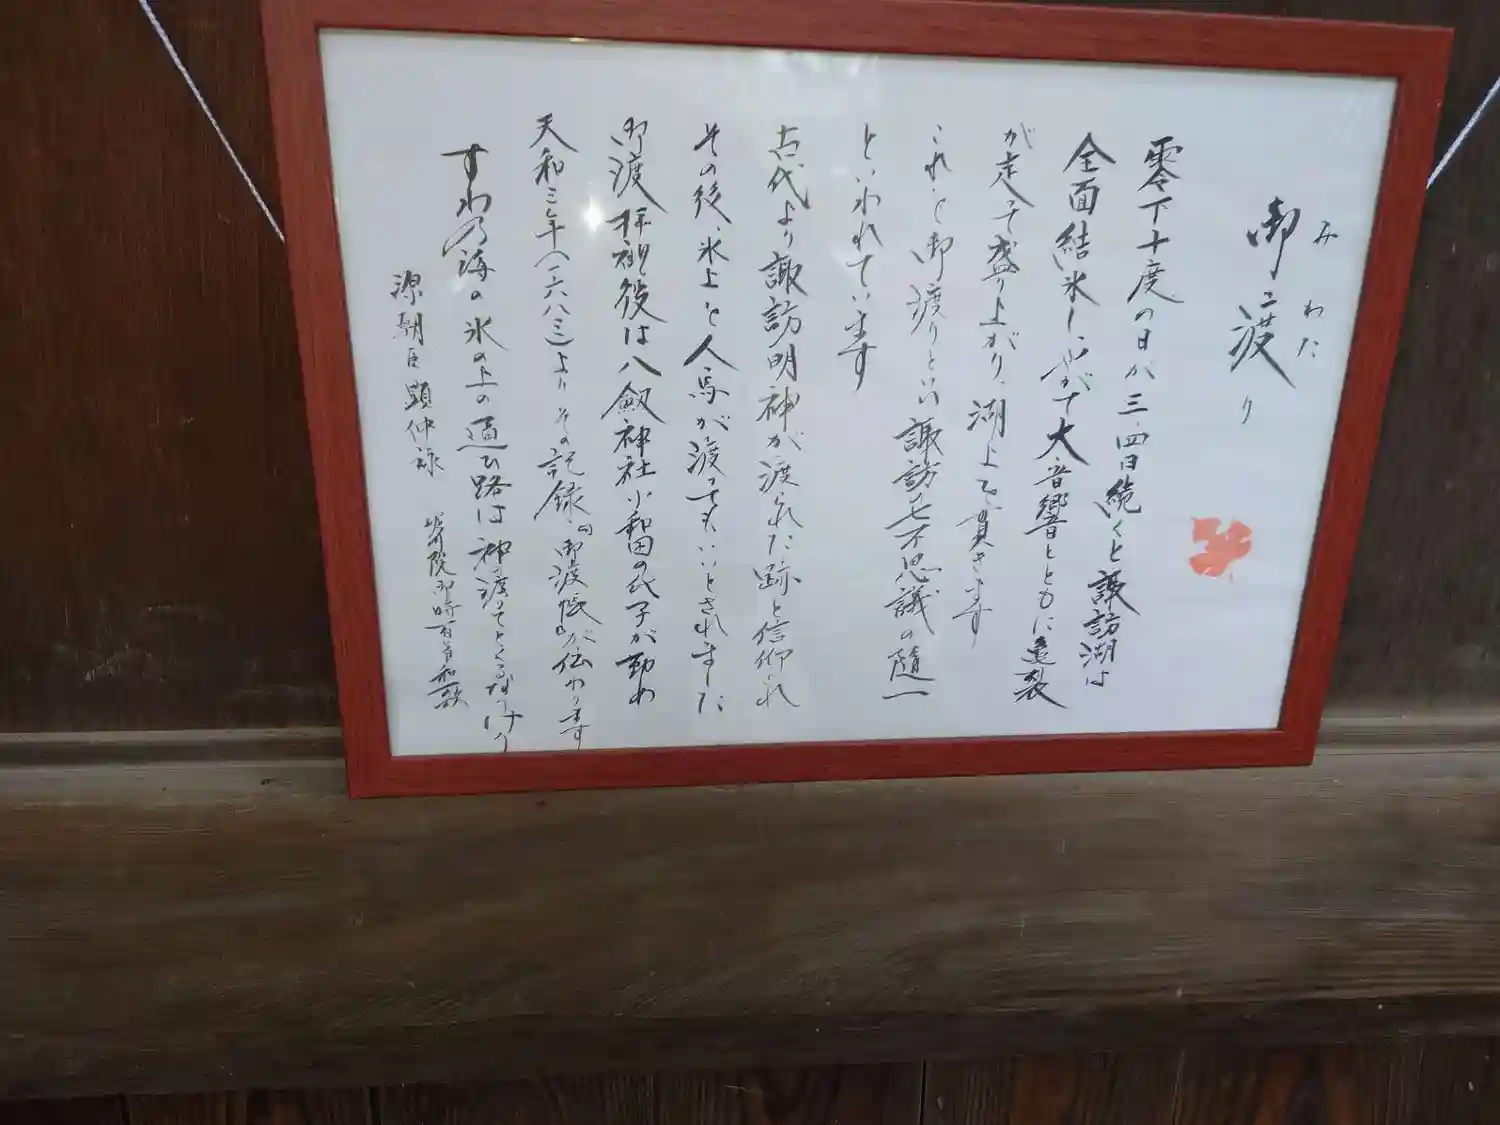 みわた
御渡り
零下十度の日が三、四日続くと諏訪湖は
全面結氷しやがて大音響とともに亀裂
が走って盛り上がり、湖上を貫きます
これを御渡りといい諏訪の七不思議の随一
といわれています
古代より諏訪明神が渡られた跡と信仰され
その後、氷上を人馬が渡ってもいいとされました
御渡拝観役は八劔神社小和田の氏子が勤め
天和三年(一六八三)よりその記録『御渡帳』が伝わります
すわの海の氷の上の通ひ路は神の渡りてとくるなりけり
源朝臣顕仲 堀河院御時百首和歌